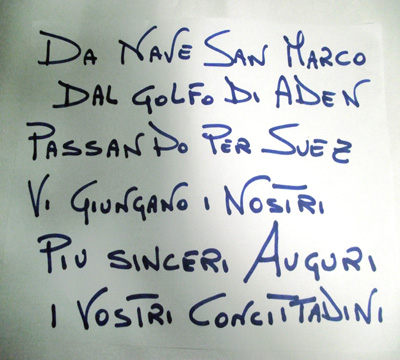 DA NAVE SAN MARCO
DAL GOLFO DI ADEN
PASSANDO PER SUEZ
VI GIUNGANO I NOSTRI
PIU SINCERI AUGURI
I VOSTRI CONCITTADINI